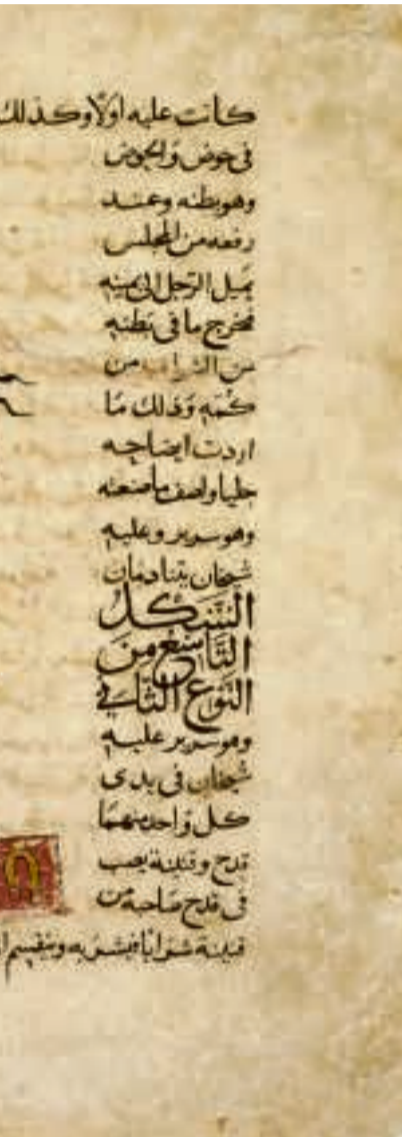 كانت عليه اولا وكذلك
فى حوض والحوض
وهو بطنه وعند
رفعه من المجلس
يميل الرجل الى يمينه
فيخرج ما فى بطنه
من الشراب من
كمه وذلك مَا
اردت ايضاحه
جليا واصف ما صنعته
وهو سرير وعليه
شيخان يتنادمان
الشكل
التاسع من
النوع الثاني
وهو سرير عليه
شيخان فى يدى
كل واحد منهما
قدح وقنينة يصب
فى قدح صاحبه من
قنينة شرابا فيشربه